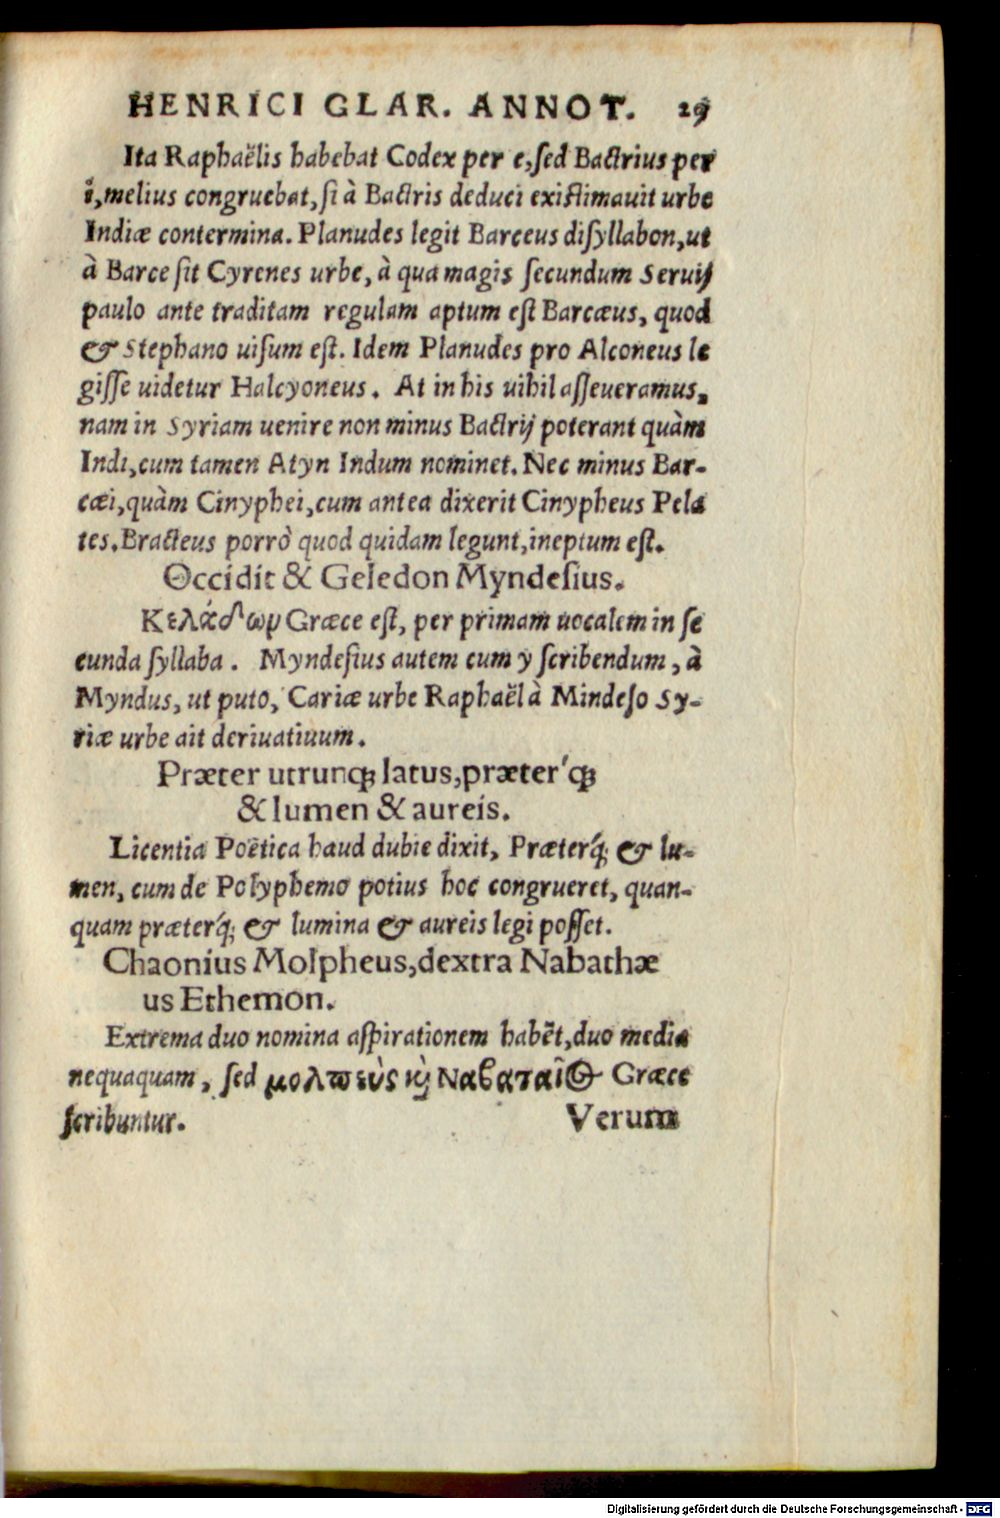 HENRICI GLAR. ANNOT. 29
Ita Raphaëlis habebat Codex per e, ſed Bactrius per
i, melius congruebat, ſi à Bactris deduci exiſtimauit urbe
Indiæ contermina. Planudes legit Barceus diſyllabon, ut
à Barce ſit Cyrenes urbe, à qua magis ſecundum Seruij
paulo ante traditam regulam aptum eſt Barcæus, quod
& Stephano uiſum eſt. Idem Planudes pro Alconeus le
giſſe uidetur Halcyoneus. At in his uihil aſſeueramus,
nam in Syriam uenire non minus Bactrij poterant quàm
Indi, cum tamen Atyn Indum nominet. Nec minus Bar-
cæi, quàm Cinyphei, cum antea dixerit Cinypheus Pela
tes. Bracteus porrò quod quidam legunt, ineptum eſt.
Occidit & Geledon Myndeſius.
Κελάδωμ Græce eſt, per primam uocalem in ſe
cunda ſyllaba. Myndeſius autem cum y ſcribendum, à
Myndus, ut puto, Cariæ urbe Raphaël à Mindeſo Sy-
riæ urbe ait deriuatiuum.
Præter utrunqꝫ latus, præter'qꝫ
& lumen & aureis.
Licentia Poëtica haud dubie dixit, Præterq́ꝫ & lu-
men, cum de Polyphemo potius hoc congrueret, quan-
quam præterq́ꝫ & lumina & aureis legi poſſet.
Chaonius Molpheus, dextra Nabathæ
us Ethemon.
Extrema duo nomina aſpirationem habẽt, duo media
nequaquam, ſed μολπεὺς καὶ Ναβαταῖος Græce
ſcribuntur. Verum
Digitalisierung gefördert durch die Deutsche Forschungsgemeinschaft - DFG